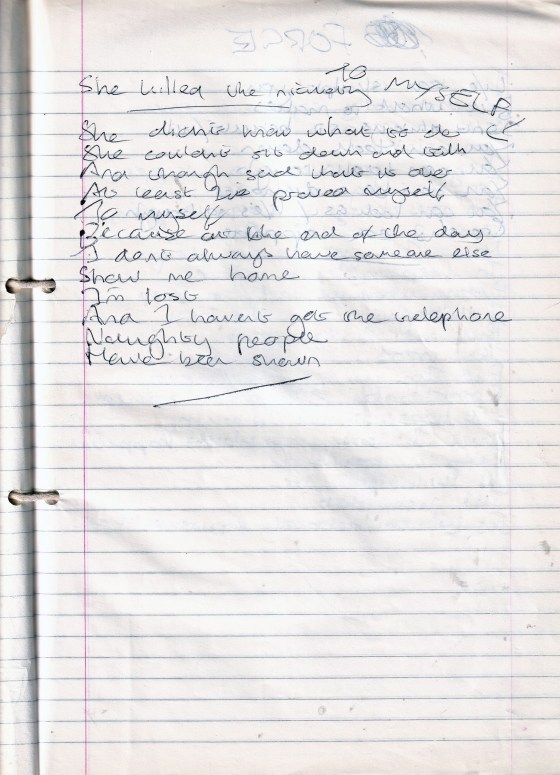 She killed the
TO MYSELF
She didn't know what to do
She couldn't sit down and talk
And though said that's over
At least I've proved myself
To myself
Because at the end of the day
I don't always have someone else
Show me home
I'm lost
And I haven't got the telephone
Naughty people
Have been shown
FORCE